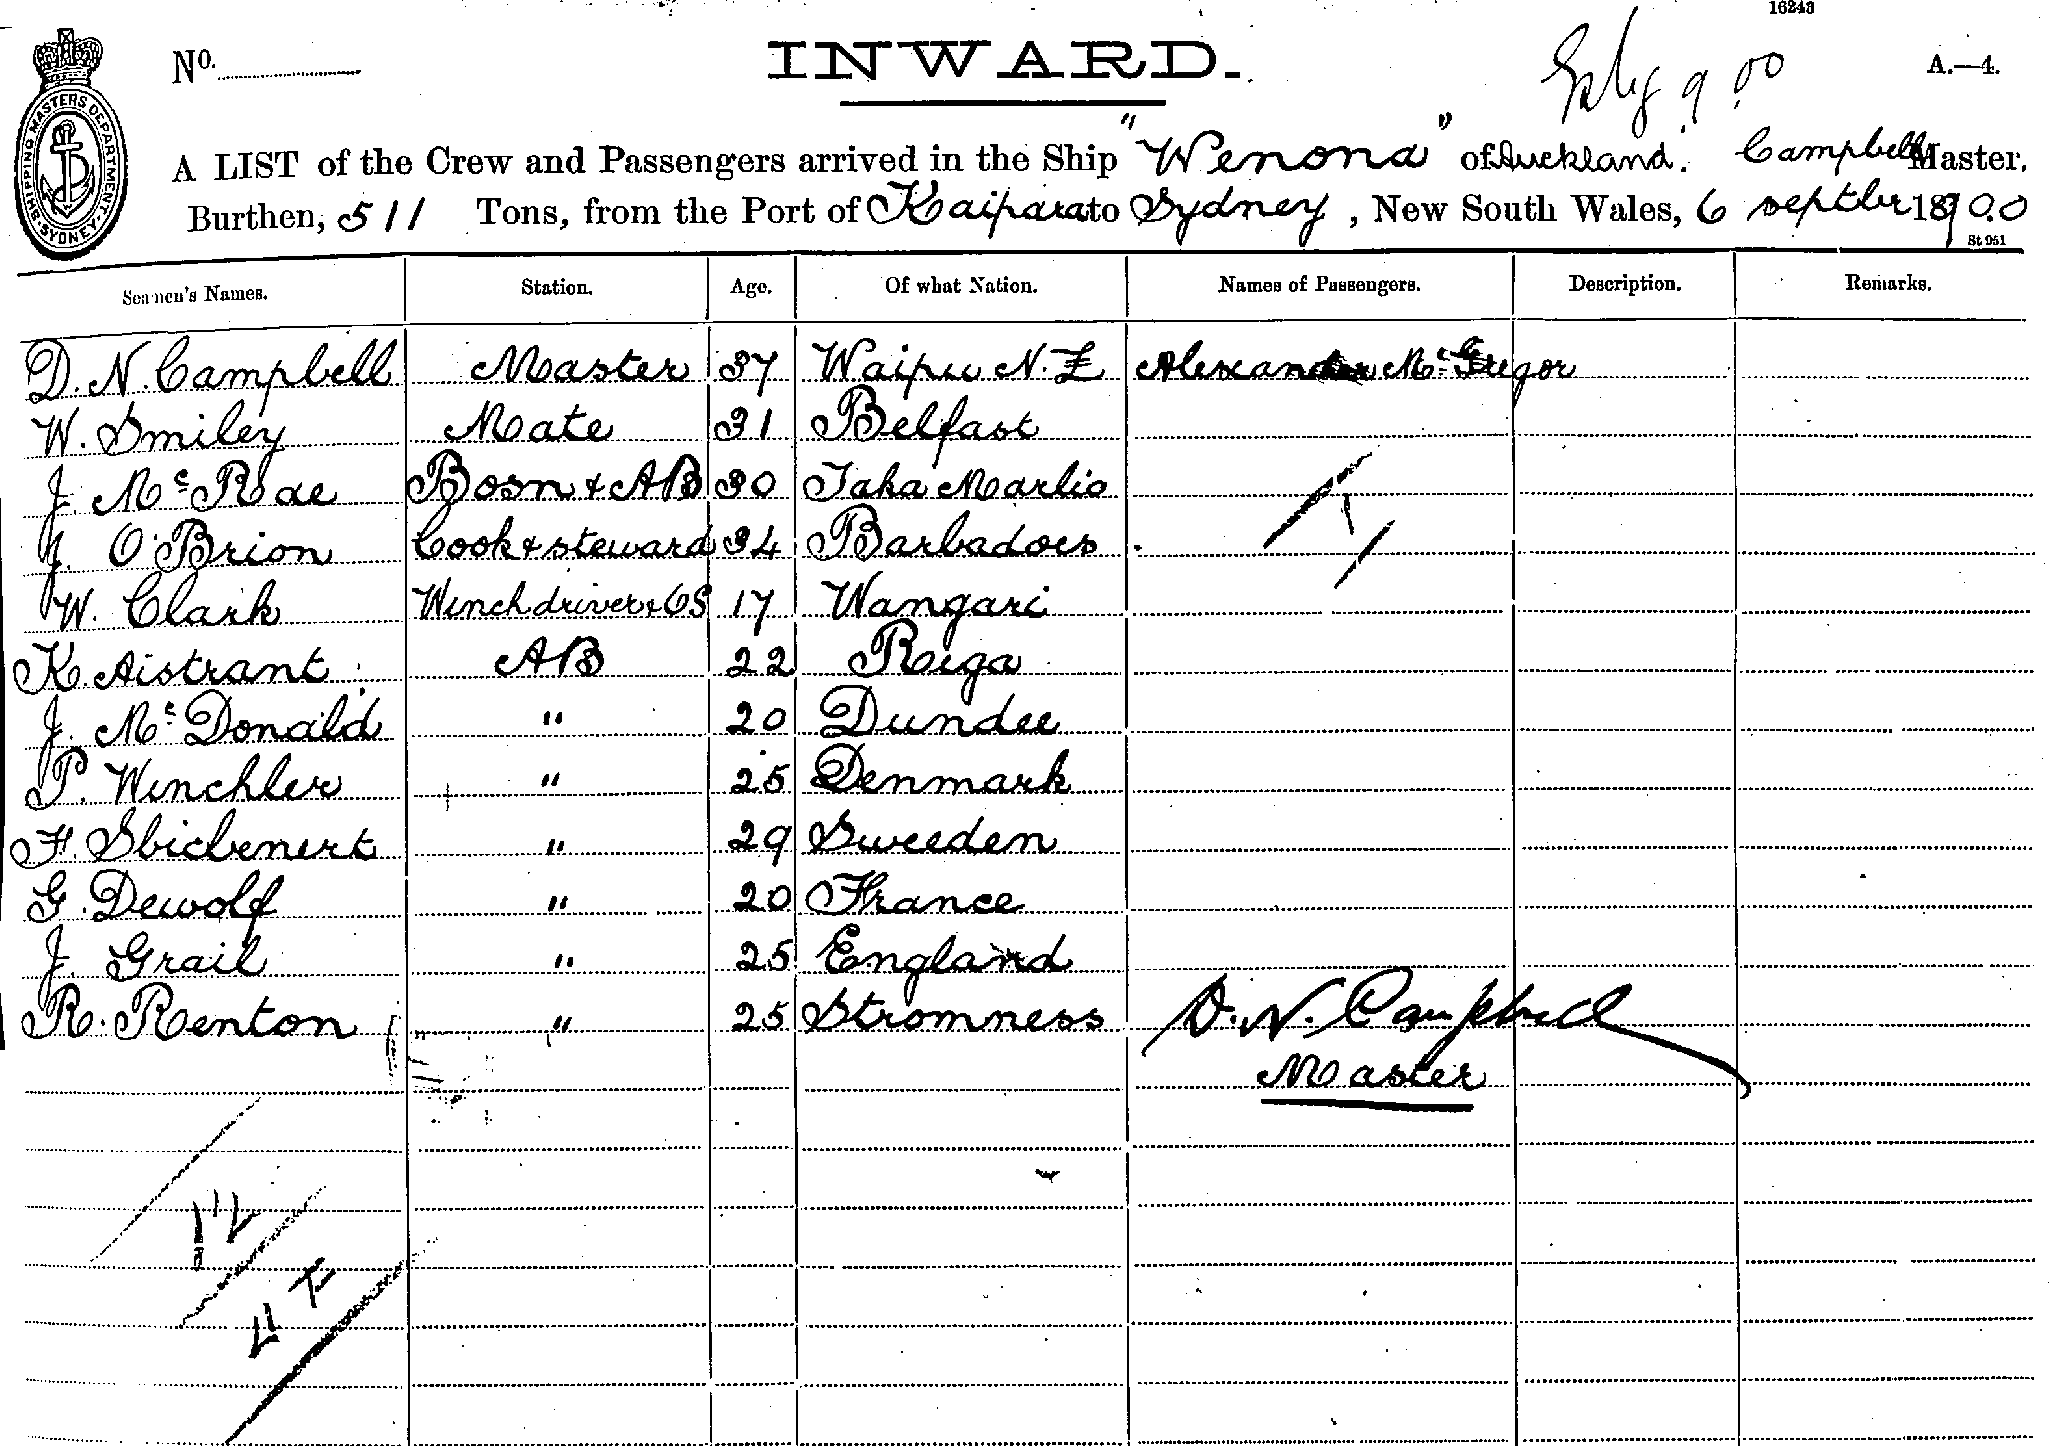 16243
No.
INWARD.
9.00
A.—4.
SHIPPING MASTERS DEPARTMENT SYDNEY
A LIST of the Crew and Passengers arrived in the Ship "Wenona" of Auckland. Campbell Master.
Burthen, 511 Tons, from the Port of Kaipara to Sydney, New South Wales, 6 Septbr 1900
St 951
Seamen's Names. Station. Age. Of what Nation. Names of Passengers. Description. Remarks.
D. N. Campbell Master 37 Waipu N.Z Alexander McGregor
W. Smiley Mate 31 Belfast
J. McRae Bosn & AB 30 Taka Marlio
J. O'Brion Cook & steward 34 Barbadoes
W. Clark Winchdriver & OS 17 Wangari
K. Aistrant AB 22 Riga
J. McDonald " 20 Dundee
P. Winchler " 25 Denmark
F. Sbicbenert " 29 Sweeden
G. Dewolf " 20 France
J. Grail " 25 England
R. Renton " 25 Stromness D. N. Campbell
Master
12